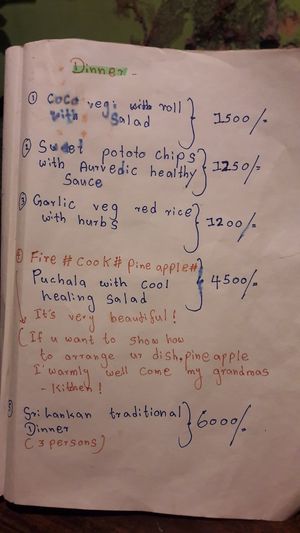 Dinner -
① Coco vegi with roll
with Salad } 1500/=
② Sweet pototo chips
with Aurvedic healthy
Sauce } 1250/=
③ Garlic veg red rice
with hurbs } 1200/=
④ Fire # cook # pine apple #
Puchala with cool
healing salad } 4500/=
It's very beautiful!
(If u want to show how
to arrange ur dish, pine apple
I warmly well come my grandmas
- Kitchen!
5 Sri lankan traditional
Dinner } 6000/=
(3 persons)